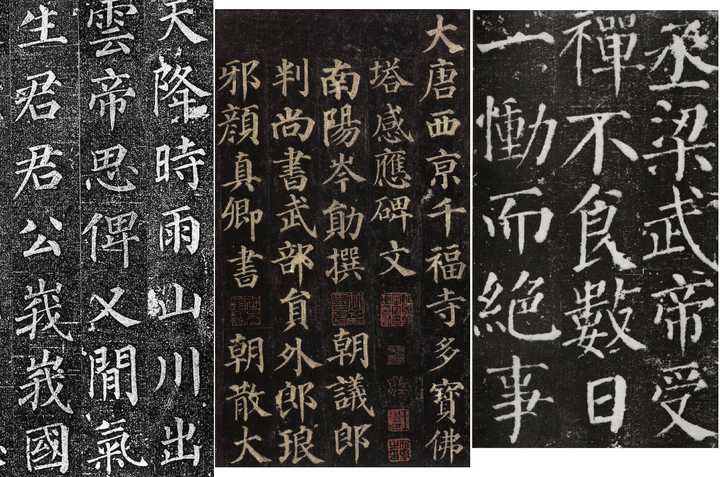 天降時雨山川出
雲帝思俾乂閒氣
生君君公峩峩國
大唐西京千福寺多寶佛
塔感應碑文
南陽岑勛撰 朝議郎
判尚書武部員外郎琅
邪顏真卿書 朝散大
丞梁武帝受
禪不食數日
一慟而絶事